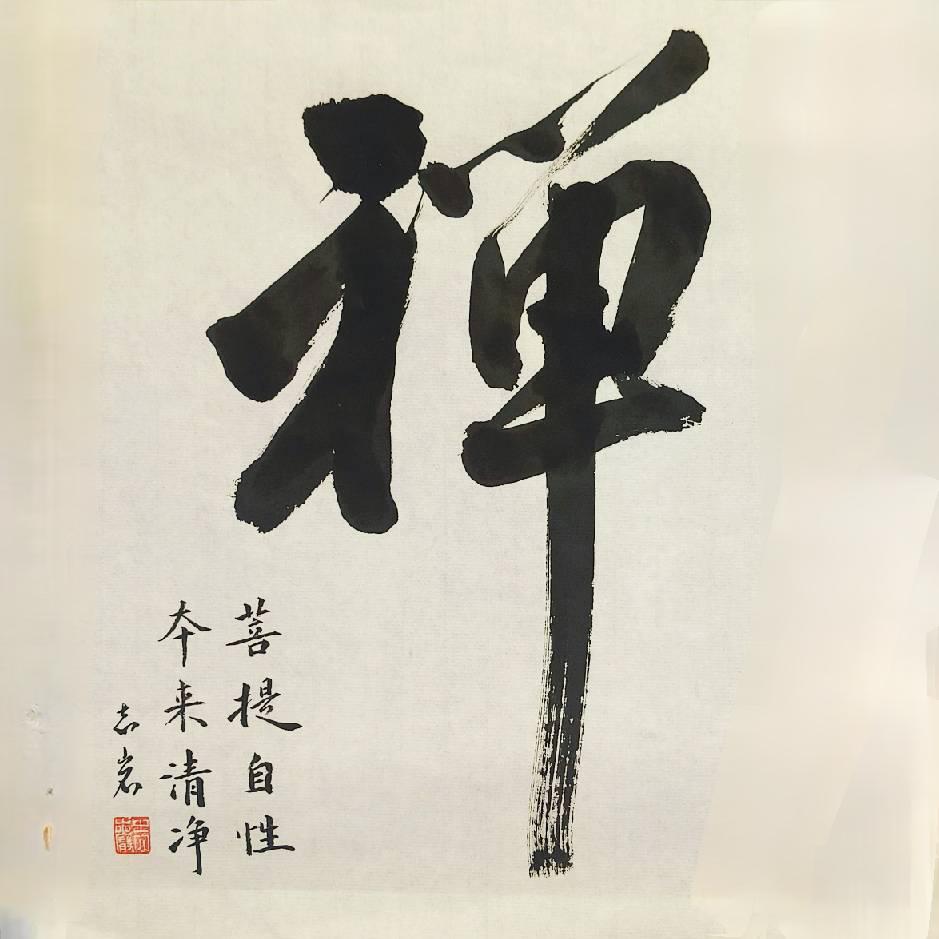 禅
菩提自性
本来清净
志岩